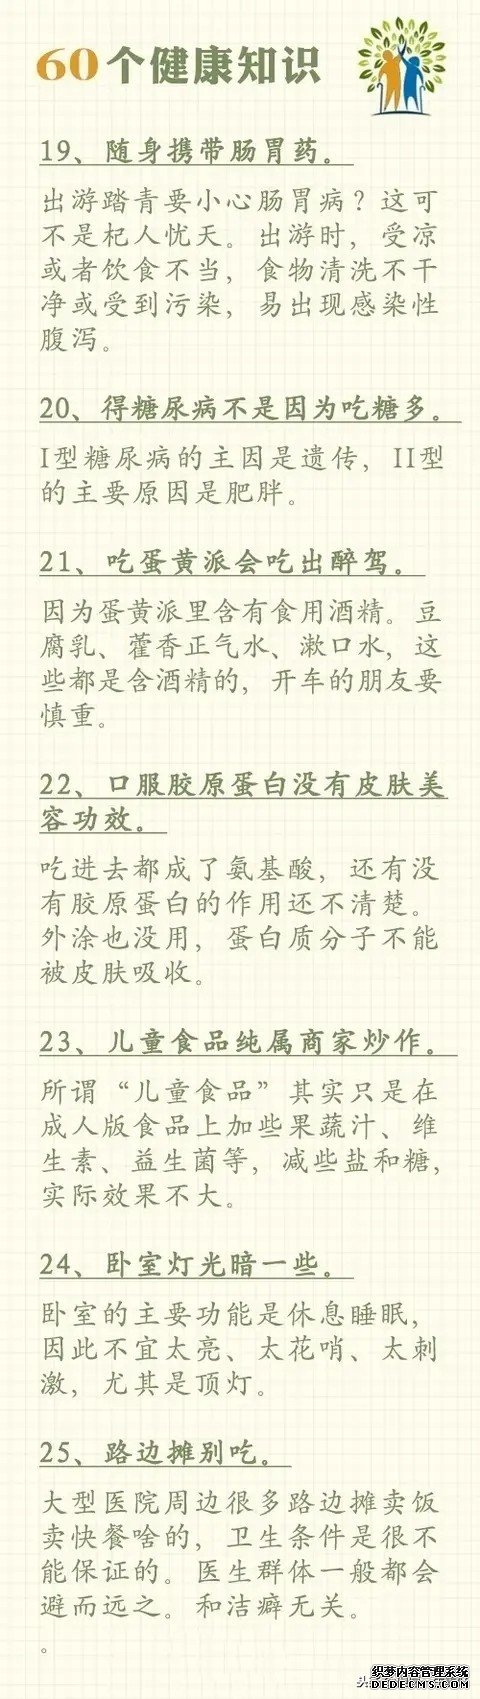 60个健康知识
19、随身携带肠胃药。
出游踏青要小心肠胃病？这可
不是杞人忧天。出游时，受凉
或者饮食不当，食物清洗不干
净或受到污染，易出现感染性
腹泻。
20、得糖尿病不是因为吃糖多。
I型糖尿病的主因是遗传，II型
的主要原因是肥胖。
21、吃蛋黄派会吃出醉驾。
因为蛋黄派里含有食用酒精。豆
腐乳、藿香正气水、漱口水，这
些都是含酒精的，开车的朋友要
慎重。
22、口服胶原蛋白没有皮肤美
容功效。
吃进去都成了氨基酸，还有没
有胶原蛋白的作用还不清楚。
外涂也没用，蛋白质分子不能
被皮肤吸收。
23、儿童食品纯属商家炒作。
所谓“儿童食品”其实只是在
成人版食品上加些果蔬汁、维
生素、益生菌等，减些盐和糖，
实际效果不大。
24、卧室灯光暗一些。
卧室的主要功能是休息睡眠，
因此不宜太亮、太花哨、太刺
激，尤其是顶灯。
25、路边摊别吃。
大型医院周边很多路边摊卖饭
卖快餐啥的，卫生条件是很不
能保证的。医生群体一般都会
避而远之。和洁癖无关。
。
织梦内容管理系统
DEDECMS.COM